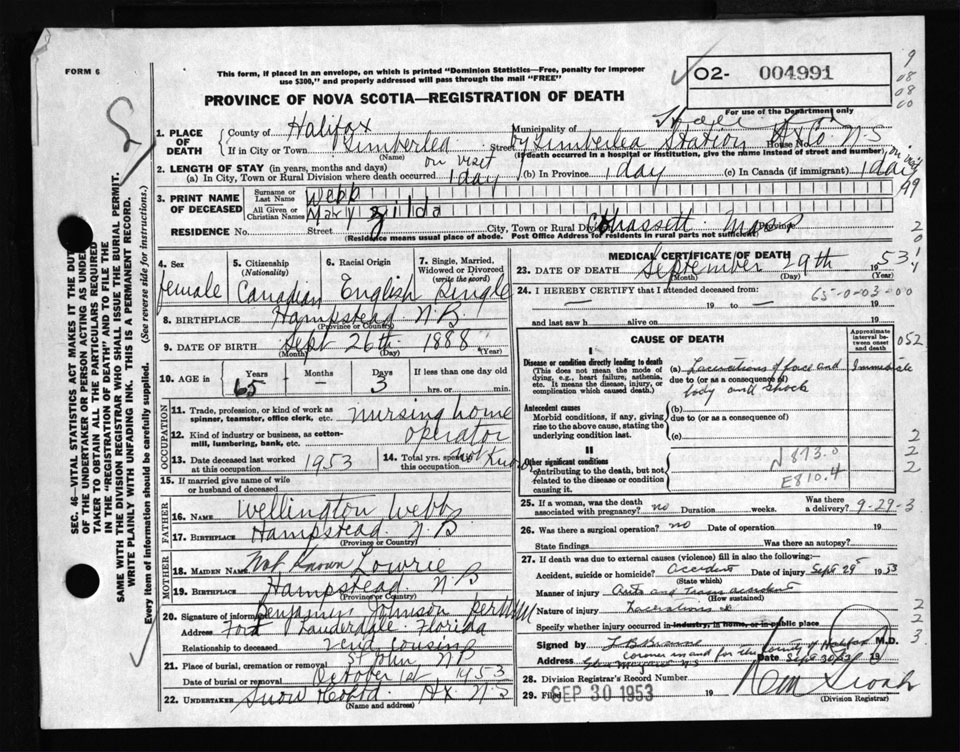 FORM 6
This form, if placed in an envelope, on which is printed "Dominion Statistics—Free, penalty for improper
use $300," and properly addressed will pass through the mail "FREE"
PROVINCE OF NOVA SCOTIA—REGISTRATION OF DEATH
02- 004991
For use of the Department only
1. PLACE OF DEATH
County of Halifax
Municipality of
If in City or Town Timberlea
(Name)
Street by Timberlea Station Hx Co. N.S.
House No.
(If death occurred in a hospital or institution, give the name instead of street and number)
2. LENGTH OF STAY (in years, months and days)
on visit
(a) In City, Town or Rural Division where death occurred 1 day (b) In Province 1 day (c) In Canada (if immigrant) 1 day
on visit
3. PRINT NAME OF DECEASED
Surname or Last Name Webb
All Given or Christian Names Mary Zilda
RESIDENCE No. Street City, Town or Rural Division Cohassett Mass
(Residence means usual place of abode. Post Office Address for residents in rural parts not sufficient)
4. Sex
female
5. Citizenship
(Nationality)
Canadian
6. Racial Origin
English
7. Single, Married, Widowed or Divorced
(write the word)
Single
8. BIRTHPLACE Hampstead N.B.
(Province or Country)
9. DATE OF BIRTH Sept 26th 1888
(Month) (Day) (Year)
10. AGE in
Years 65
Months —
Days 3
If less than one day old
hrs. or min.
OCCUPATION
11. Trade, profession, or kind of work as spinner, teamster, office clerk, etc. nursing home
12. Kind of industry or business, as cotton-mill, lumbering, bank, etc. operator
13. Date deceased last worked at this occupation 1953
14. Total yrs. spent in this occupation Not Known
15. If married give name of wife or husband of deceased
FATHER
16. NAME Wellington Webb
17. BIRTHPLACE Hampstead N B
(Province or Country)
MOTHER
18. MAIDEN NAME Not Known Lowrie
19. BIRTHPLACE Hampstead N B
(Province or Country)
20. Signature of informant Benjamin Johnson per
Address Fort Lauderdale Florida
Relationship to deceased 2end cousins
21. Place of burial, cremation or removal St John N B
Date of burial or removal October 1st 1953
22. UNDERTAKER Snow Hx N.S
(Name and address)
MEDICAL CERTIFICATE OF DEATH
23. DATE OF DEATH September 29th 1953
(Month) (Day) (Year)
24. I HEREBY CERTIFY that I attended deceased from:
— 19 to — 19
65-0-03-00
and last saw h alive on 19
CAUSE OF DEATH
Approximate interval between onset and death
052
I
Disease or condition directly leading to death
(This does not mean the mode of dying, e.g., heart failure, asthenia, etc. It means the disease, injury, or complication which caused death.)
(a) Lacerations of face and body and shock
Immediate
due to (or as a consequence of)
Antecedent causes
Morbid conditions, if any, giving rise to the above cause, stating the underlying condition last.
(b)
due to (or as a consequence of)
(c)
II
Other significant conditions
contributing to the death, but not related to the disease or condition causing it.
N873.0
E810.4
25. If a woman, was the death associated with pregnancy? no Duration weeks.
Was there a delivery? 9-29-3
26. Was there a surgical operation? no Date of operation 19
State findings Was there an autopsy?
27. If death was due to external causes (violence) fill in also the following:—
Accident, suicide or homicide? Accident Date of injury Sept 29 1953
(State which)
Manner of injury Auto and Train accident
(How sustained)
Nature of injury Lacerations
Specify whether injury occurred in industry, in home, or in public place
Signed by M.D.
Coroner in and for the County of Halifax
Address N S Date Sept 30 19
28. Division Registrar's Record Number
29. Filed SEP 30 1953 19
(Division Registrar)
SEC. 46—VITAL STATISTICS ACT MAKES IT THE DUTY
OF THE UNDERTAKER OR PERSON ACTING AS UNDERTAKER
TAKER TO OBTAIN ALL THE PARTICULARS REQUIRED
IN THE "REGISTRATION OF DEATH" AND TO FILE THE
SAME WITH THE DIVISION REGISTRAR WHO SHALL ISSUE THE BURIAL PERMIT.
WRITE PLAINLY WITH UNFADING INK. THIS IS A PERMANENT RECORD.
Every item of information should be carefully supplied. (See reverse side for instructions.)